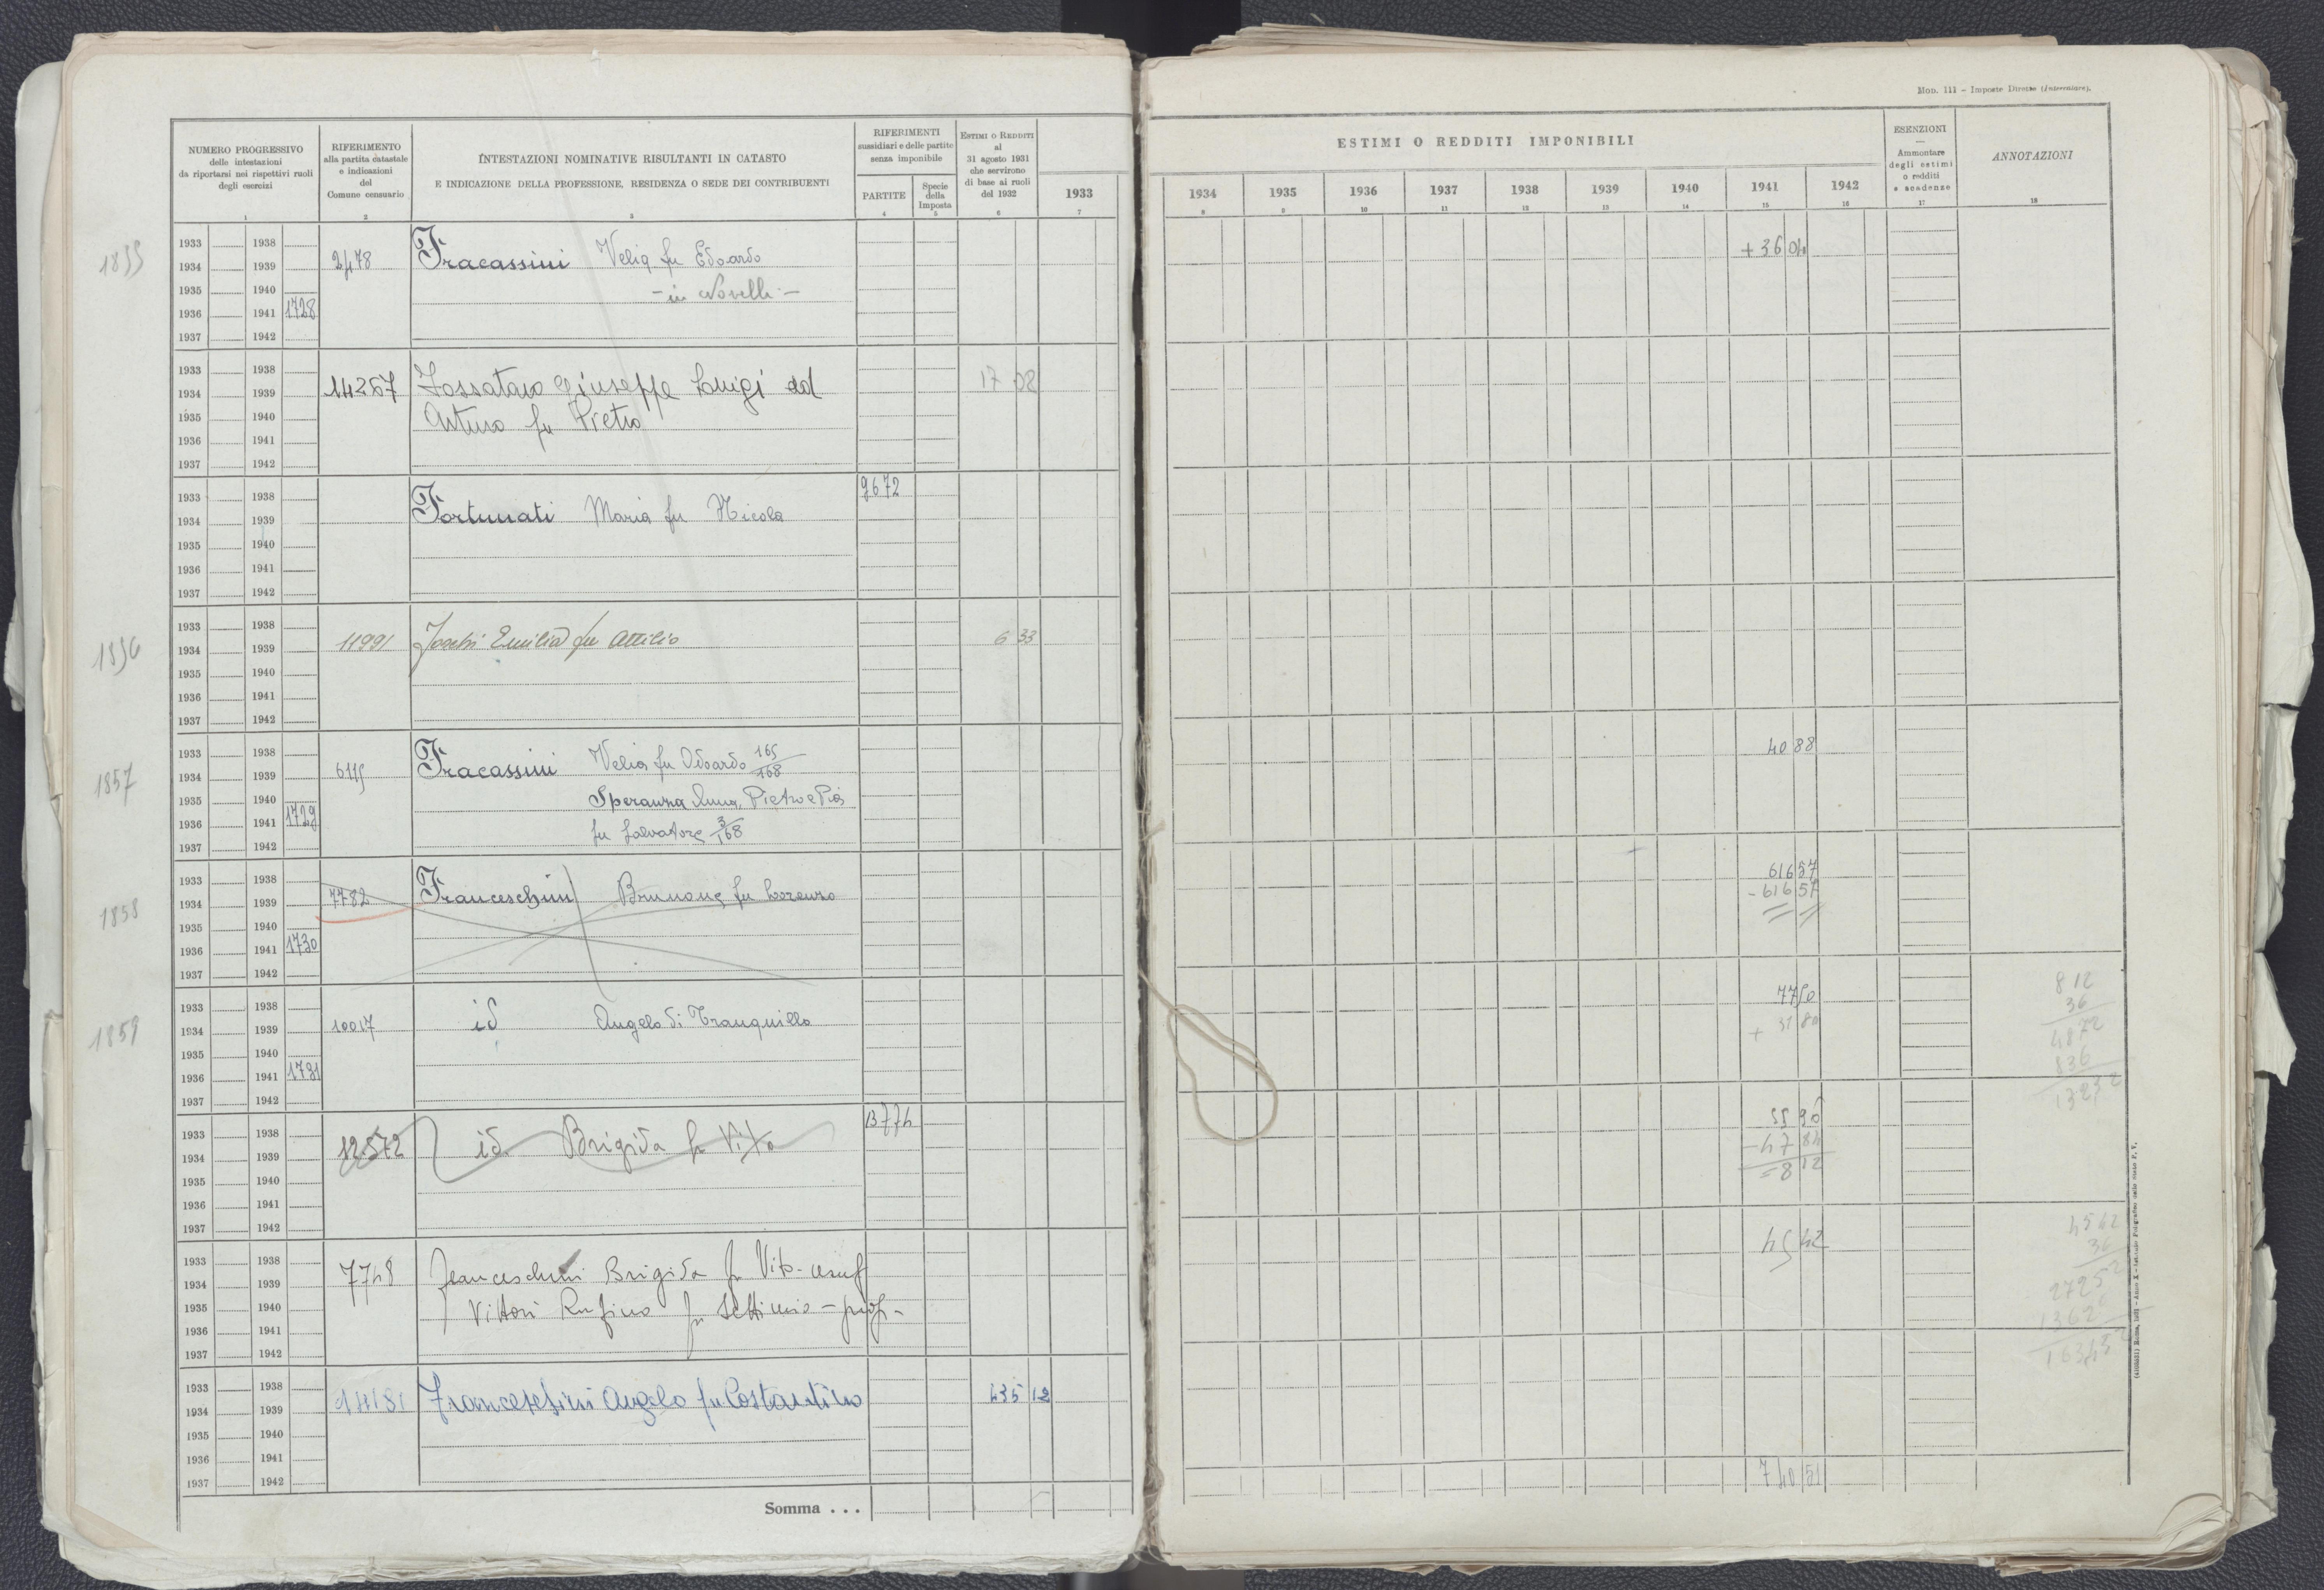 Mod. 111 - Imposte Dirette (Intercalare).
NUMERO PROGRESSIVO
delle intestazioni
da riportarsi nei rispettivi ruoli
degli esercizi
1
RIFERIMENTO
alla partita catastale
e indicazioni
del
Comune censuario
2
INTESTAZIONI NOMINATIVE RISULTANTI IN CATASTO
E INDICAZIONE DELLA PROFESSIONE, RESIDENZA O SEDE DEI CONTRIBUENTI
3
RIFERIMENTI
sussidiari e delle partite
senza imponibile
PARTITE
4
Specie
della
Imposta
5
ESTIMI O REDDITI
al
31 agosto 1931
che servirono
di base ai ruoli
del 1932
6
1933
7
ESTIMI O REDDITI IMPONIBILI
1934 1935 1936 1937 1938 1939 1940 1941 1942
8 9 10 11 12 13 14 15 16
ESENZIONI
Ammontare
degli estimi
o redditi
e scadenze
17
ANNOTAZIONI
18
1933 1938
1934 1939 2478 Fracassini Velia fu Edoardo + 36 04
1935 1940 - in Novelli -
1936 1941 1728
1937 1942
1933 1938
1934 1939 14267 Giuseppe Luigi ed 17 08
1935 1940 Arturo fu Pietro
1936 1941
1937 1942
1933 1938 9672
1934 1939 Fortunati Maria fu Nicola
1935 1940
1936 1941
1937 1942
1856
1933 1938
1934 1939 11991 Emilia fu Attilio 6 33
1935 1940
1936 1941
1937 1942
1857
1933 1938 Velia fu Odoardo 165/168 40 88
1934 1939 6115 Fracassini
1935 1940 Speranza Anna, Pietro e Pia
1936 1941 1729
1937 1942 fu Salvatore 3/168
1858
1933 1938 616 57
1934 1939 7782 Franceschini Brunone fu Lorenzo - 616 57
1935 1940
1936 1941 1730
1937 1942
1859
1933 1938 77 50
1934 1939 10017 id Angelo di Tranquillo + 31 80
1935 1940
1936 1941 1731
1937 1942
812
36
4872
836
1933 1938 13774 55 96
1934 1939 12572 id. Brigida fu Vito - 47 84
1935 1940 = 8 12
1936 1941
1937 1942
1933 1938 45 42
1934 1939 7748 Franceschini Brigida fu Vito - usuf
1935 1940 Vittori Rufino fu Settimio - prop -
1936 1941
1937 1942
4542
36
27252
1933 1938
1934 1939 14181 Franceschini Angelo fu Costantino 435 12
1935 1940
1936 1941
1937 1942 740 51
Somma . . .